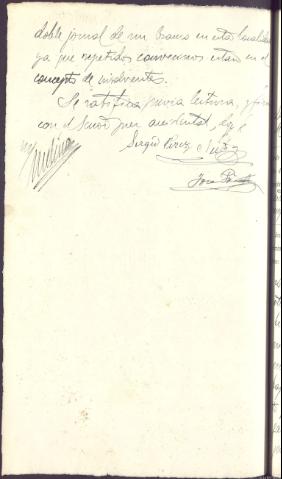 doble jornal de un bracero en esta localidad
ya que repetidos convecinos estan en el
concepto de insolventes.
Se ratifica previa lectura, y firma
con el Señor juez accidental, doy fe
Sergio Perez
Molina
Jose